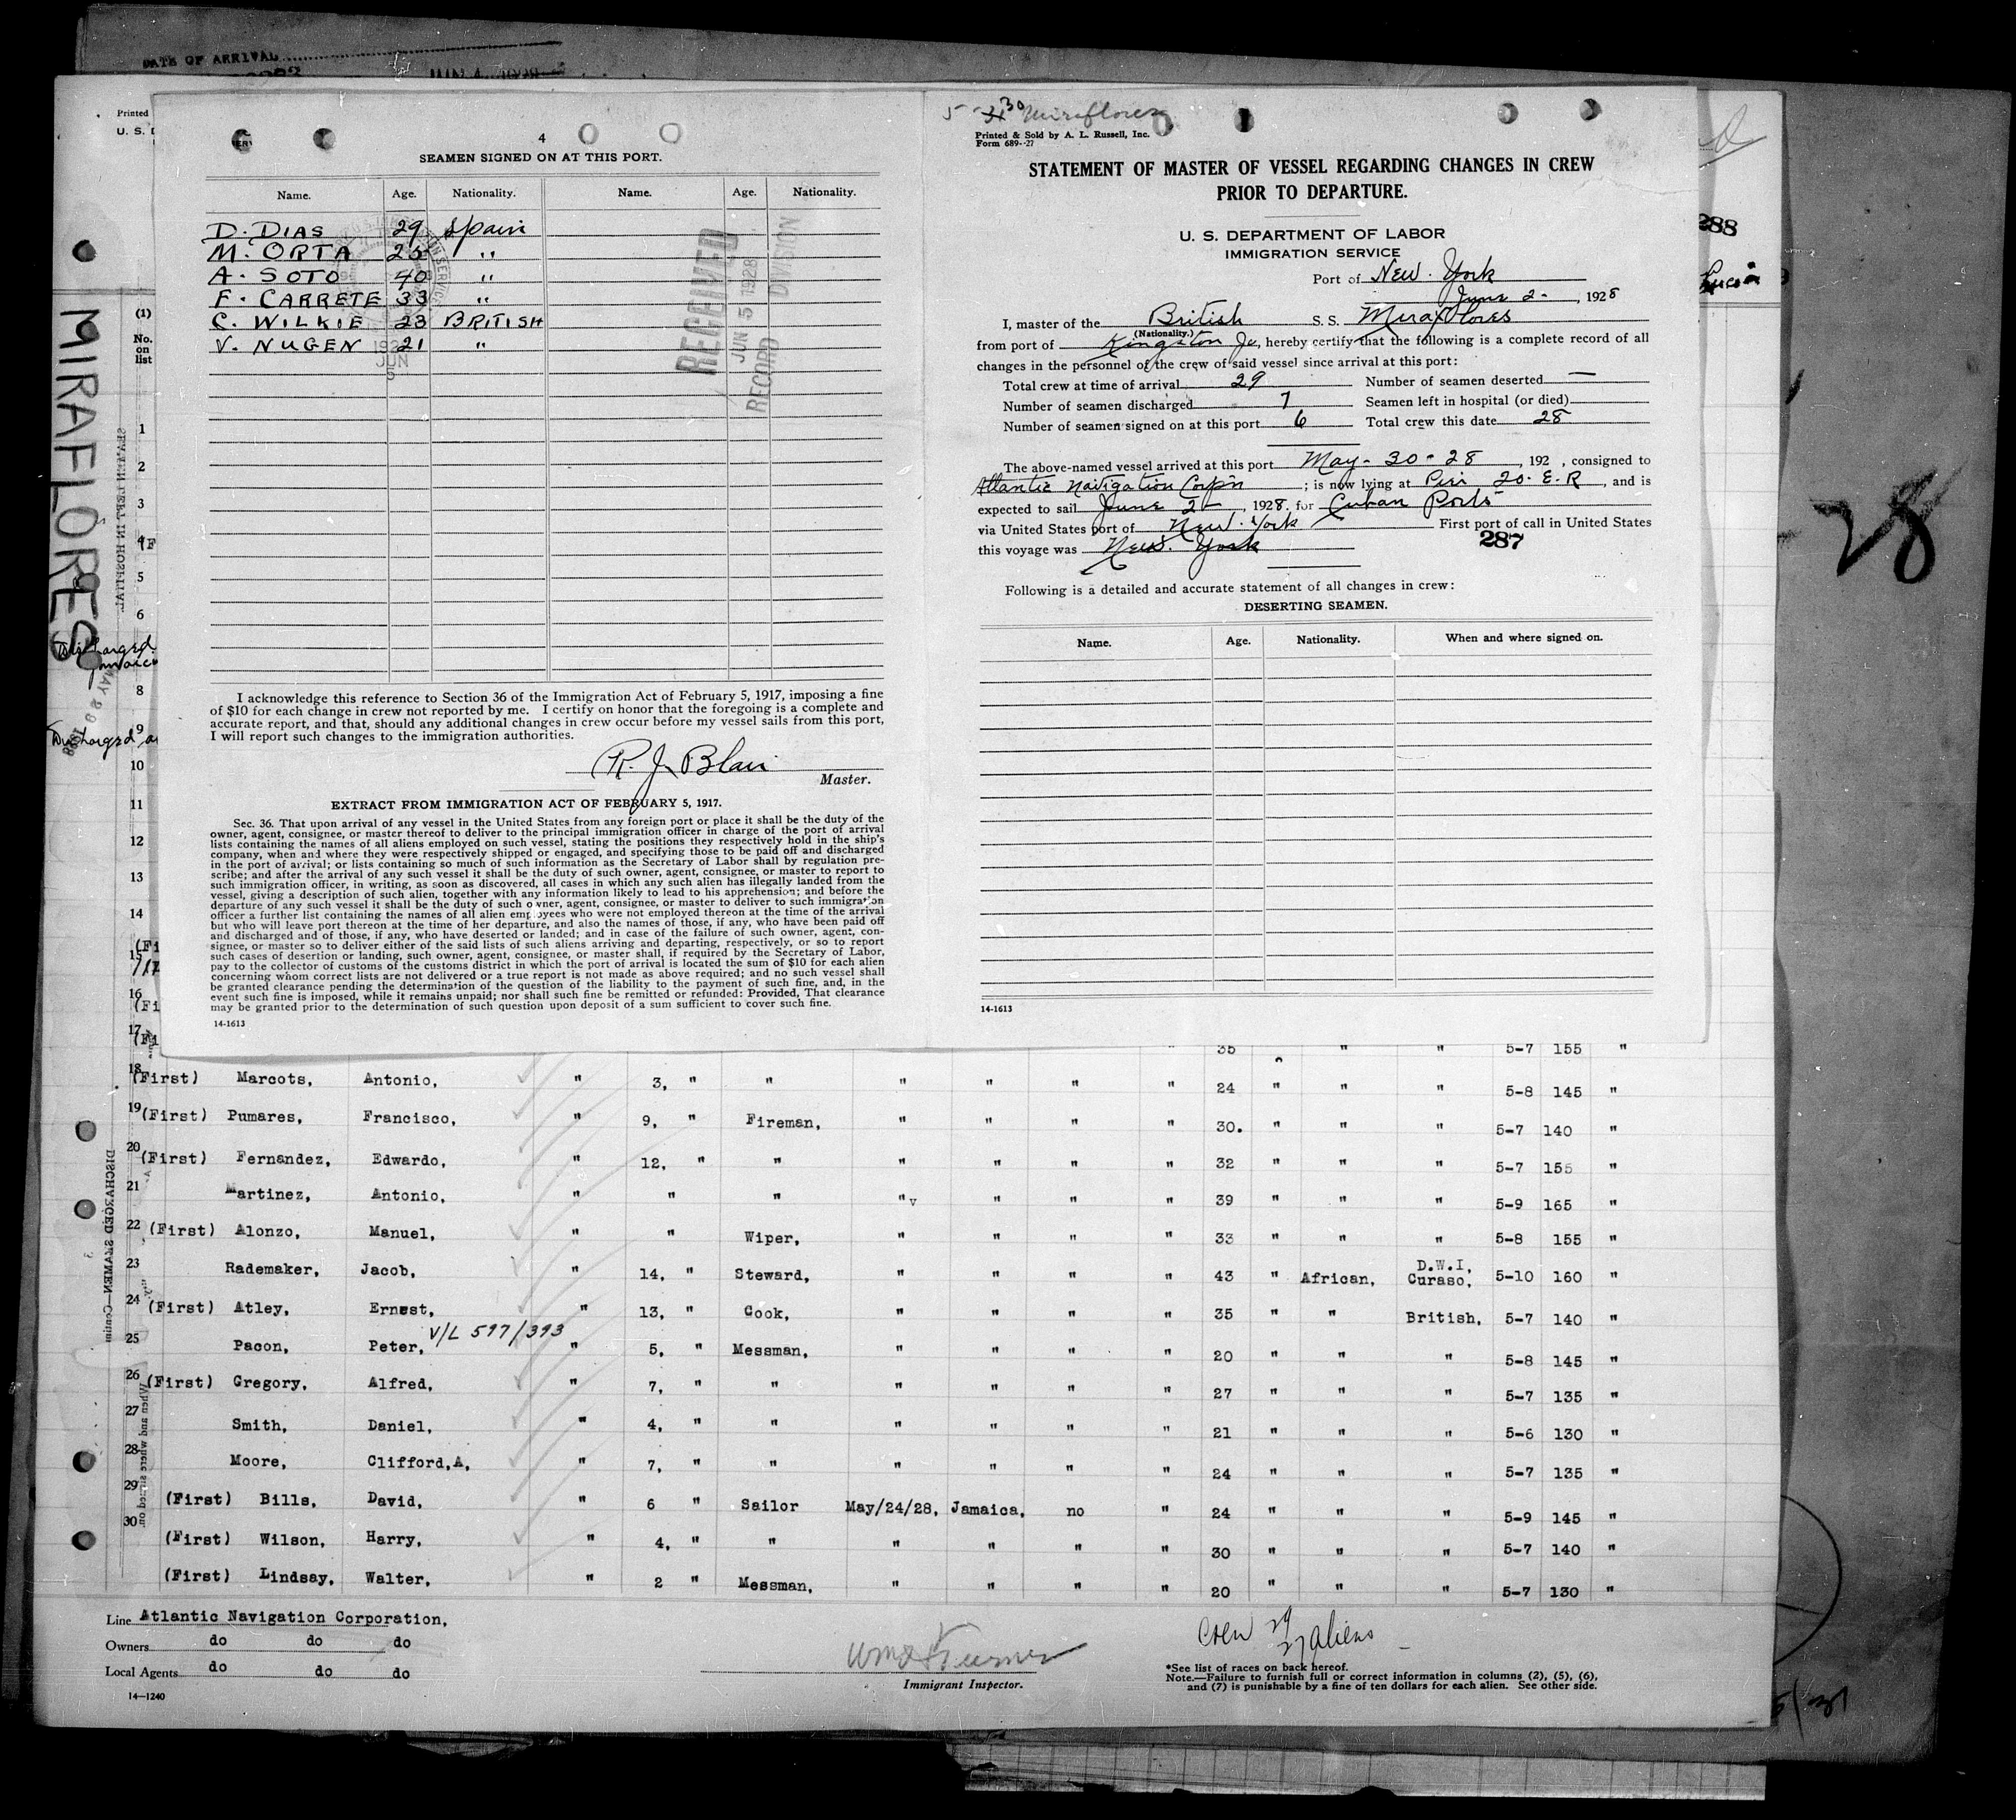 DATE OF ARRIVAL
Printed
U. S. D
MIRAFLORES
(1)
No.
on
list
4
SEAMEN SIGNED ON AT THIS PORT.
Name. Age. Nationality. Name. Age. Nationality.
D. DIAS 29 Spain
M. ORTA 25 "
A. SOTO 40 "
F. CARRETE 33 "
C. WILKIE 23 BRITISH
V. NUGEN 21 "
RECEIVED
JUN 5 1928
RECORD DIVISION
I acknowledge this reference to Section 36 of the Immigration Act of February 5, 1917, imposing a fine
of $10 for each change in crew not reported by me. I certify on honor that the foregoing is a complete and
accurate report, and that, should any additional changes in crew occur before my vessel sails from this port,
I will report such changes to the immigration authorities.
R. J. Blair
Master.
EXTRACT FROM IMMIGRATION ACT OF FEBRUARY 5, 1917.
Sec. 36. That upon arrival of any vessel in the United States from any foreign port or place it shall be the duty of the
owner, agent, consignee, or master thereof to deliver to the principal immigration officer in charge of the port of arrival
lists containing the names of all aliens employed on such vessel, stating the positions they respectively hold in the ship's
company, when and where they were respectively shipped or engaged, and specifying those to be paid off and discharged
in the port of arrival; or lists containing so much of such information as the Secretary of Labor shall by regulation pre-
scribe; and after the arrival of any such vessel it shall be the duty of such owner, agent, consignee, or master to report to
such immigration officer, in writing, as soon as discovered, all cases in which any such alien has illegally landed from the
vessel, giving a description of such alien, together with any information likely to lead to his apprehension; and before the
departure of any such vessel it shall be the duty of such owner, agent, consignee, or master to deliver to such immigration
officer a further list containing the names of all alien employees who were not employed thereon at the time of the arrival
but who will leave port thereon at the time of her departure, and also the names of those, if any, who have been paid off
and discharged and of those, if any, who have deserted or landed; and in case of the failure of such owner, agent, con-
signee, or master so to deliver either of the said lists of such aliens arriving and departing, respectively, or so to report
such cases of desertion or landing, such owner, agent, consignee, or master shall, if required by the Secretary of Labor,
pay to the collector of customs of the customs district in which the port of arrival is located the sum of $10 for each alien
concerning whom correct lists are not delivered or a true report is not made as above required; and no such vessel shall
be granted clearance pending the determination of the question of the liability to the payment of such fine, and, in the
event such fine is imposed, while it remains unpaid; nor shall such fine be remitted or refunded: Provided, That clearance
may be granted prior to the determination of such question upon deposit of a sum sufficient to cover such fine.
14-1613
5-30 Miraflores
Printed & Sold by A. L. Russell, Inc.
Form 689--27
STATEMENT OF MASTER OF VESSEL REGARDING CHANGES IN CREW
PRIOR TO DEPARTURE.
U. S. DEPARTMENT OF LABOR
IMMIGRATION SERVICE
Port of New York
June 2- , 1928
I, master of the British S. S. Miraflores
(Nationality.)
from port of Kingston Ja, hereby certify that the following is a complete record of all
changes in the personnel of the crew of said vessel since arrival at this port:
Total crew at time of arrival 29 Number of seamen deserted —
Number of seamen discharged 7 Seamen left in hospital (or died)
Number of seamen signed on at this port 6 Total crew this date 28
The above-named vessel arrived at this port May-30-28, 192 , consigned to
Atlantic Navigation Corp'n ; is now lying at Pier 20. E.R , and is
expected to sail June 2 , 1928. for Cuban Ports
via United States port of New York First port of call in United States
this voyage was New York
287
Following is a detailed and accurate statement of all changes in crew:
DESERTING SEAMEN.
Name. Age. Nationality. When and where signed on.
14-1613
288
28
35 " " " 5-7 155 "
18 (First) Marcots, Antonio, " 3, " " " " " " 24 " " " 5-8 145 "
19 (First) Pumares, Francisco, 9, " Fireman, " " " " 30. " " " 5-7 140 "
20 (First) Fernandez, Edwardo, " 12, " " " " " " 32 " " " 5-7 155 "
21 Martinez, Antonio, " " " " " " " 39 " " " 5-9 165 "
22 (First) Alonzo, Manuel, " " Wiper, " " " " 33 " " " 5-8 155 "
23 Rademaker, Jacob, " 14, " Steward, " " " " 43 " African, D.W.I, Curaso, 5-10 160 "
24 (First) Atley, Ernest, " 13, " Cook, " " " " 35 " " British, 5-7 140 "
V/L 597/393
25 Pacon, Peter, " 5, " Messman, " " " " 20 " " " 5-8 145 "
26 (First) Gregory, Alfred, " 7, " " " " " " 27 " " " 5-7 135 "
27 Smith, Daniel, " 4, " " " " " " 21 " " " 5-6 130 "
28 Moore, Clifford,A, " 7, " " " " " " 24 " " " 5-7 135 "
29 (First) Bills, David, " 6 " Sailor May/24/28, Jamaica, no " 24 " " " 5-9 145 "
30 (First) Wilson, Harry, " 4, " " " " " " 30 " " " 5-7 140 "
(First) Lindsay, Walter, " 2 " Messman, " " " " 20 " " " 5-7 130 "
Line Atlantic Navigation Corporation,
Owners do do do
Local Agents do do do
14—1240
Immigrant Inspector.
Crew 29
27 aliens
*See list of races on back hereof.
Note.—Failure to furnish full or correct information in columns (2), (5), (6),
and (7) is punishable by a fine of ten dollars for each alien. See other side.